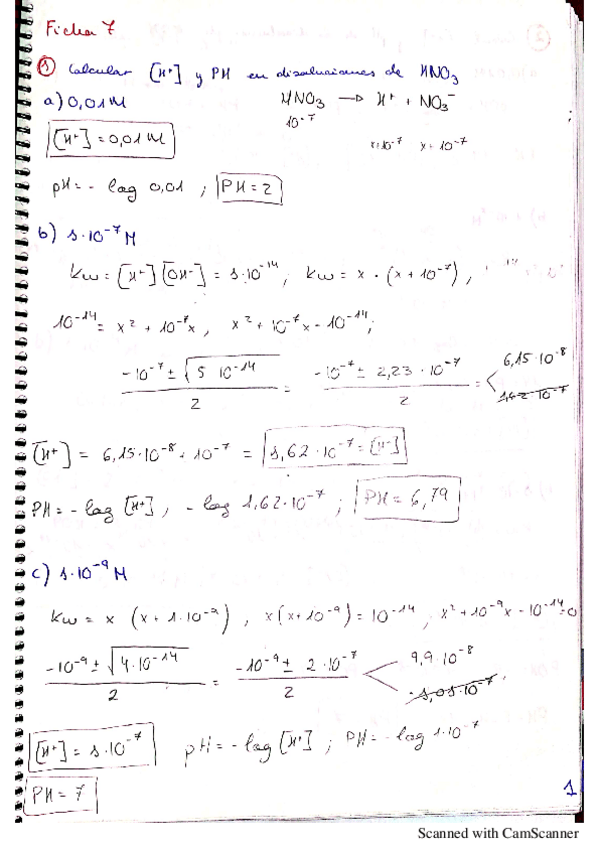 Ficha 7
① Calcular [H⁺] y PH en disoluciones de HNO₃
a) 0,01M HNO₃ → H⁺ + NO₃⁻
10⁻⁷
[H⁺] = 0,01M x=10⁻⁷ x=10⁻⁷
pH = - log 0,01 ; PH = 2
b) 1·10⁻⁷ M
Kw = [H⁺] [OH⁻] = 1·10⁻¹⁴, Kw = x · (x + 10⁻⁷),
10⁻¹⁴ = x² + 10⁻⁷x, x² + 10⁻⁷x - 10⁻¹⁴;
(-10⁻⁷ ± √(5 10⁻¹⁴)) / 2 = (-10⁻⁷ ± 2,23 · 10⁻⁷) / 2 = < 6,15·10⁻⁸
1,62·10⁻⁷
[H⁺] = 6,15·10⁻⁸ + 10⁻⁷ = 1,62·10⁻⁷ = [H⁺]
PH = - log [H⁺], - log 1,62·10⁻⁷ ; PH = 6,79
c) 1·10⁻⁹ M
Kw = x (x + 1·10⁻⁹), x(x + 10⁻⁹) = 10⁻¹⁴, x² + 10⁻⁹x - 10⁻¹⁴ = 0
(-10⁻⁹ ± √(4·10⁻¹⁴)) / 2 = (-10⁻⁹ ± 2·10⁻⁷) / 2 < 9,9·10⁻⁸
-1,01·10⁻⁷
[H⁺] = 1·10⁻⁷ pH = - log [H⁺] ; PH = - log 1·10⁻⁷
PH = 7
1
Scanned with CamScanner